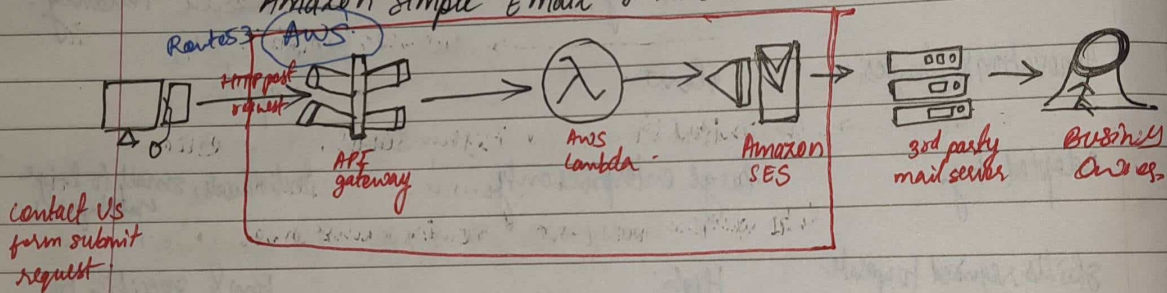 Amazon Simple Email
Route53
AWS
HTTP post
request
API
gateway
AWS
Lambda
Amazon
SES
3rd party
mail server
Businiss
Owner
contact Us
form submit
request